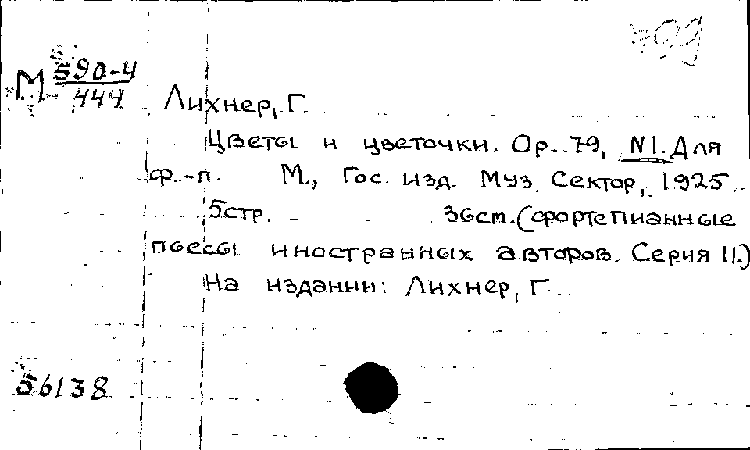 М 590-4
444
Лихнер, Г.
Цветы и цветочки. Ор. 79, N1. Для
ф.-п. М., Гос. изд. Муз. Сектор, 1925
5стр. 36cm. (фортепианные
пьесы иностранных авторов. Серия II.)
На издании: Лихнер, Г.
56138